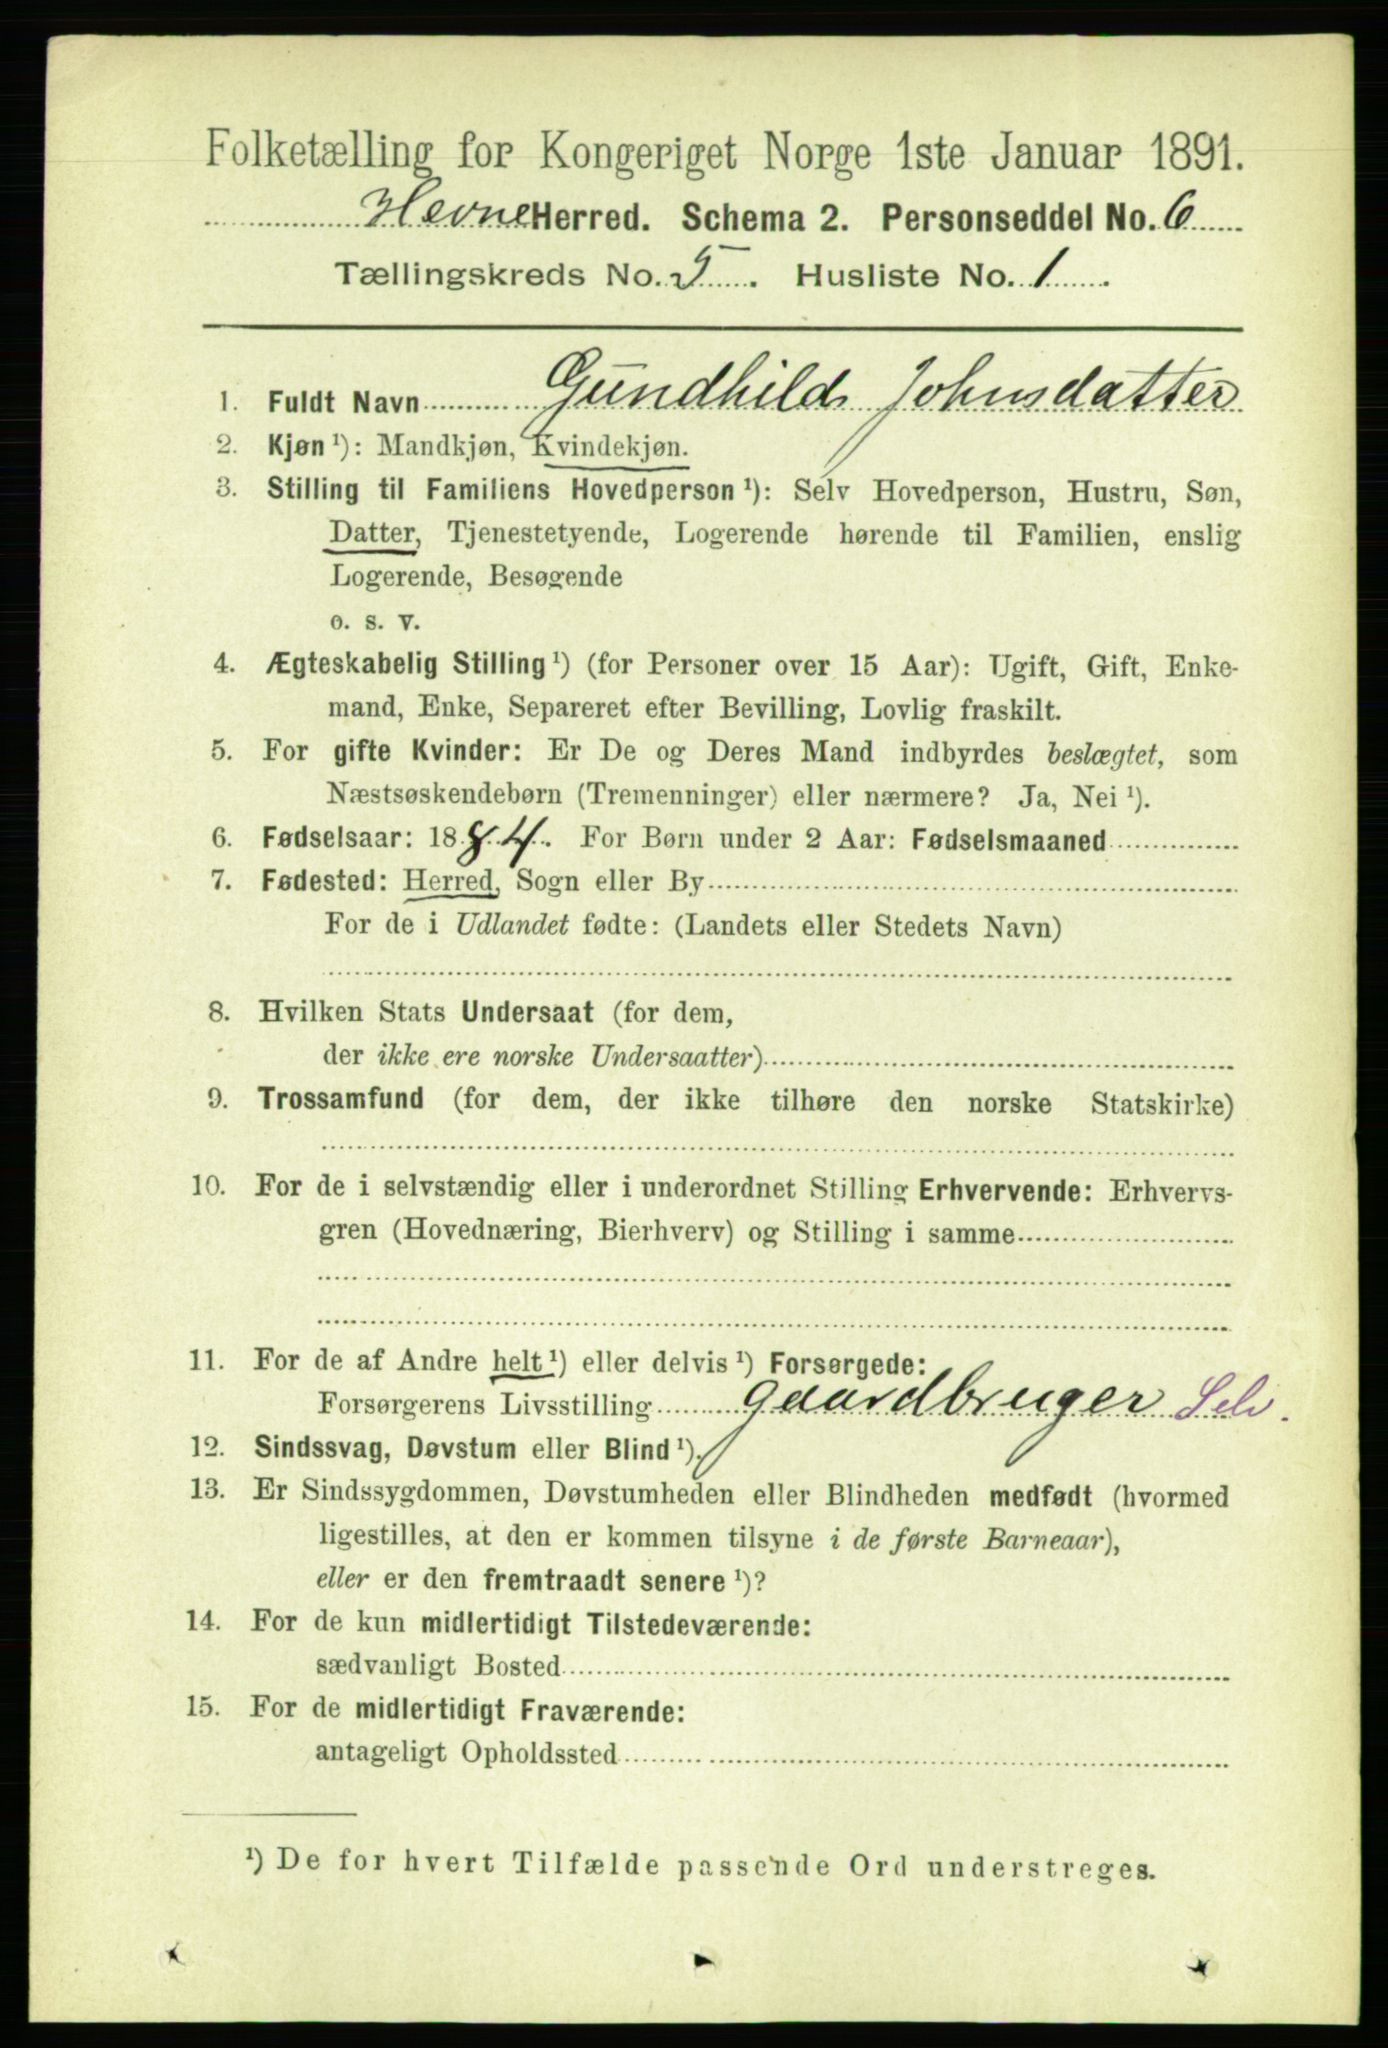 Folketælling for Kongeriget Norge 1ste Januar 1891.
Hevne Herred. Schema 2. Personseddel No. 6
Tællingskreds No. 5. Husliste No. 1.
1. Fuldt Navn Gundhild Johnsdatter
2. Kjøn ¹): Mandkjøn, Kvindekjøn.
3. Stilling til Familiens Hovedperson ¹): Selv Hovedperson, Hustru, Søn,
Datter, Tjenestetyende, Logerende hørende til Familien, enslig
Logerende, Besøgende
o. s. v.
4. Ægteskabelig Stilling ¹) (for Personer over 15 Aar): Ugift, Gift, Enke-
mand, Enke, Separeret efter Bevilling, Lovlig fraskilt.
5. For gifte Kvinder: Er De og Deres Mand indbyrdes beslægtet, som
Næstsøskendebørn (Tremenninger) eller nærmere? Ja, Nei ¹).
6. Fødselsaar: 1884. For Børn under 2 Aar: Fødselsmaaned
7. Fødested: Herred, Sogn eller By
For de i Udlandet fødte: (Landets eller Stedets Navn)
8. Hvilken Stats Undersaat (for dem,
der ikke ere norske Undersaatter)
9. Trossamfund (for dem, der ikke tilhøre den norske Statskirke)
10. For de i selvstændig eller i underordnet Stilling Erhvervende: Erhvervs-
gren (Hovednæring, Bierhverv) og Stilling i samme
11. For de af Andre helt ¹) eller delvis ¹) Forsørgede:
Forsørgerens Livsstilling Gaardbruger Selv.
12. Sindssvag, Døvstum eller Blind ¹).
13. Er Sindssygdommen, Døvstumheden eller Blindheden medfødt (hvormed
ligestilles, at den er kommen tilsyne i de første Barneaar),
eller er den fremtraadt senere ¹)?
14. For de kun midlertidigt Tilstedeværende:
sædvanligt Bosted
15. For de midlertidigt Fraværende:
antageligt Opholdssted
¹) De for hvert Tilfælde passende Ord understreges.